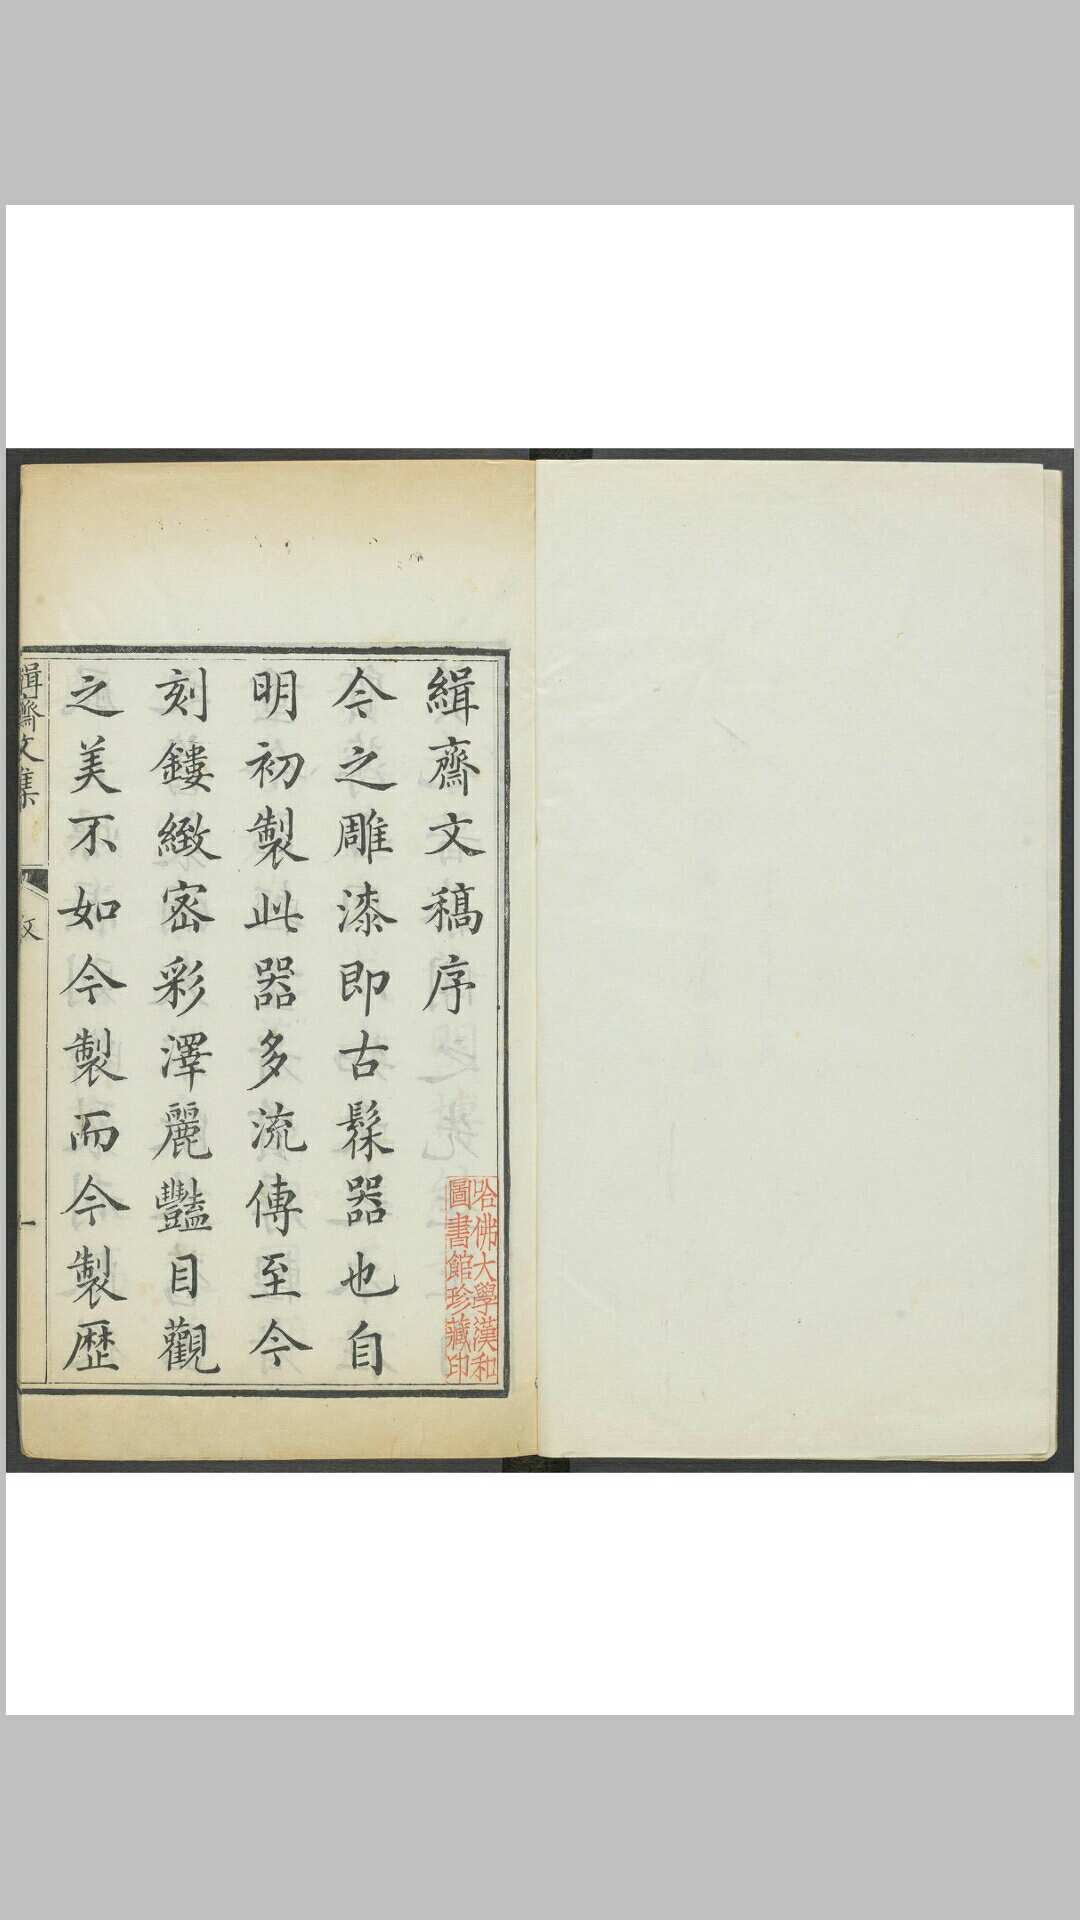 緝齋文稿序
今之雕漆即古髹器也自
明初製此器多流傳至今
刻鏤緻密彩澤麗豔目觀
之美不如今製而今製歷
緝齋文集
序
一
哈佛大學漢和
圖書館珍藏印